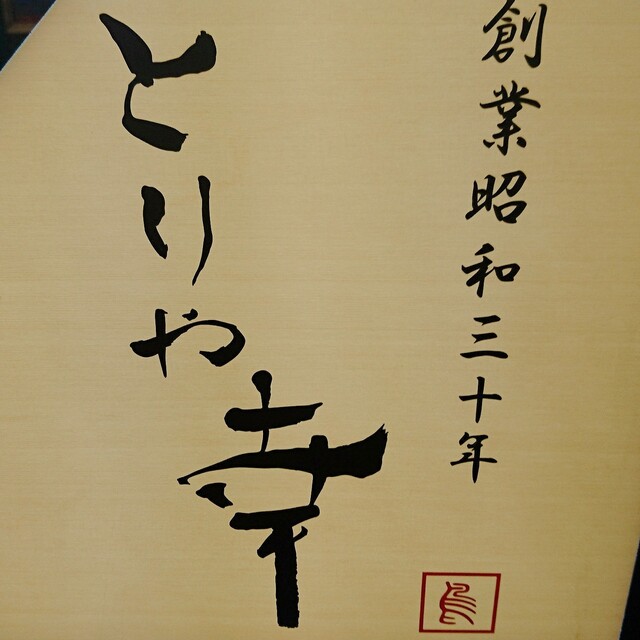 創業昭和三十年
とりや幸